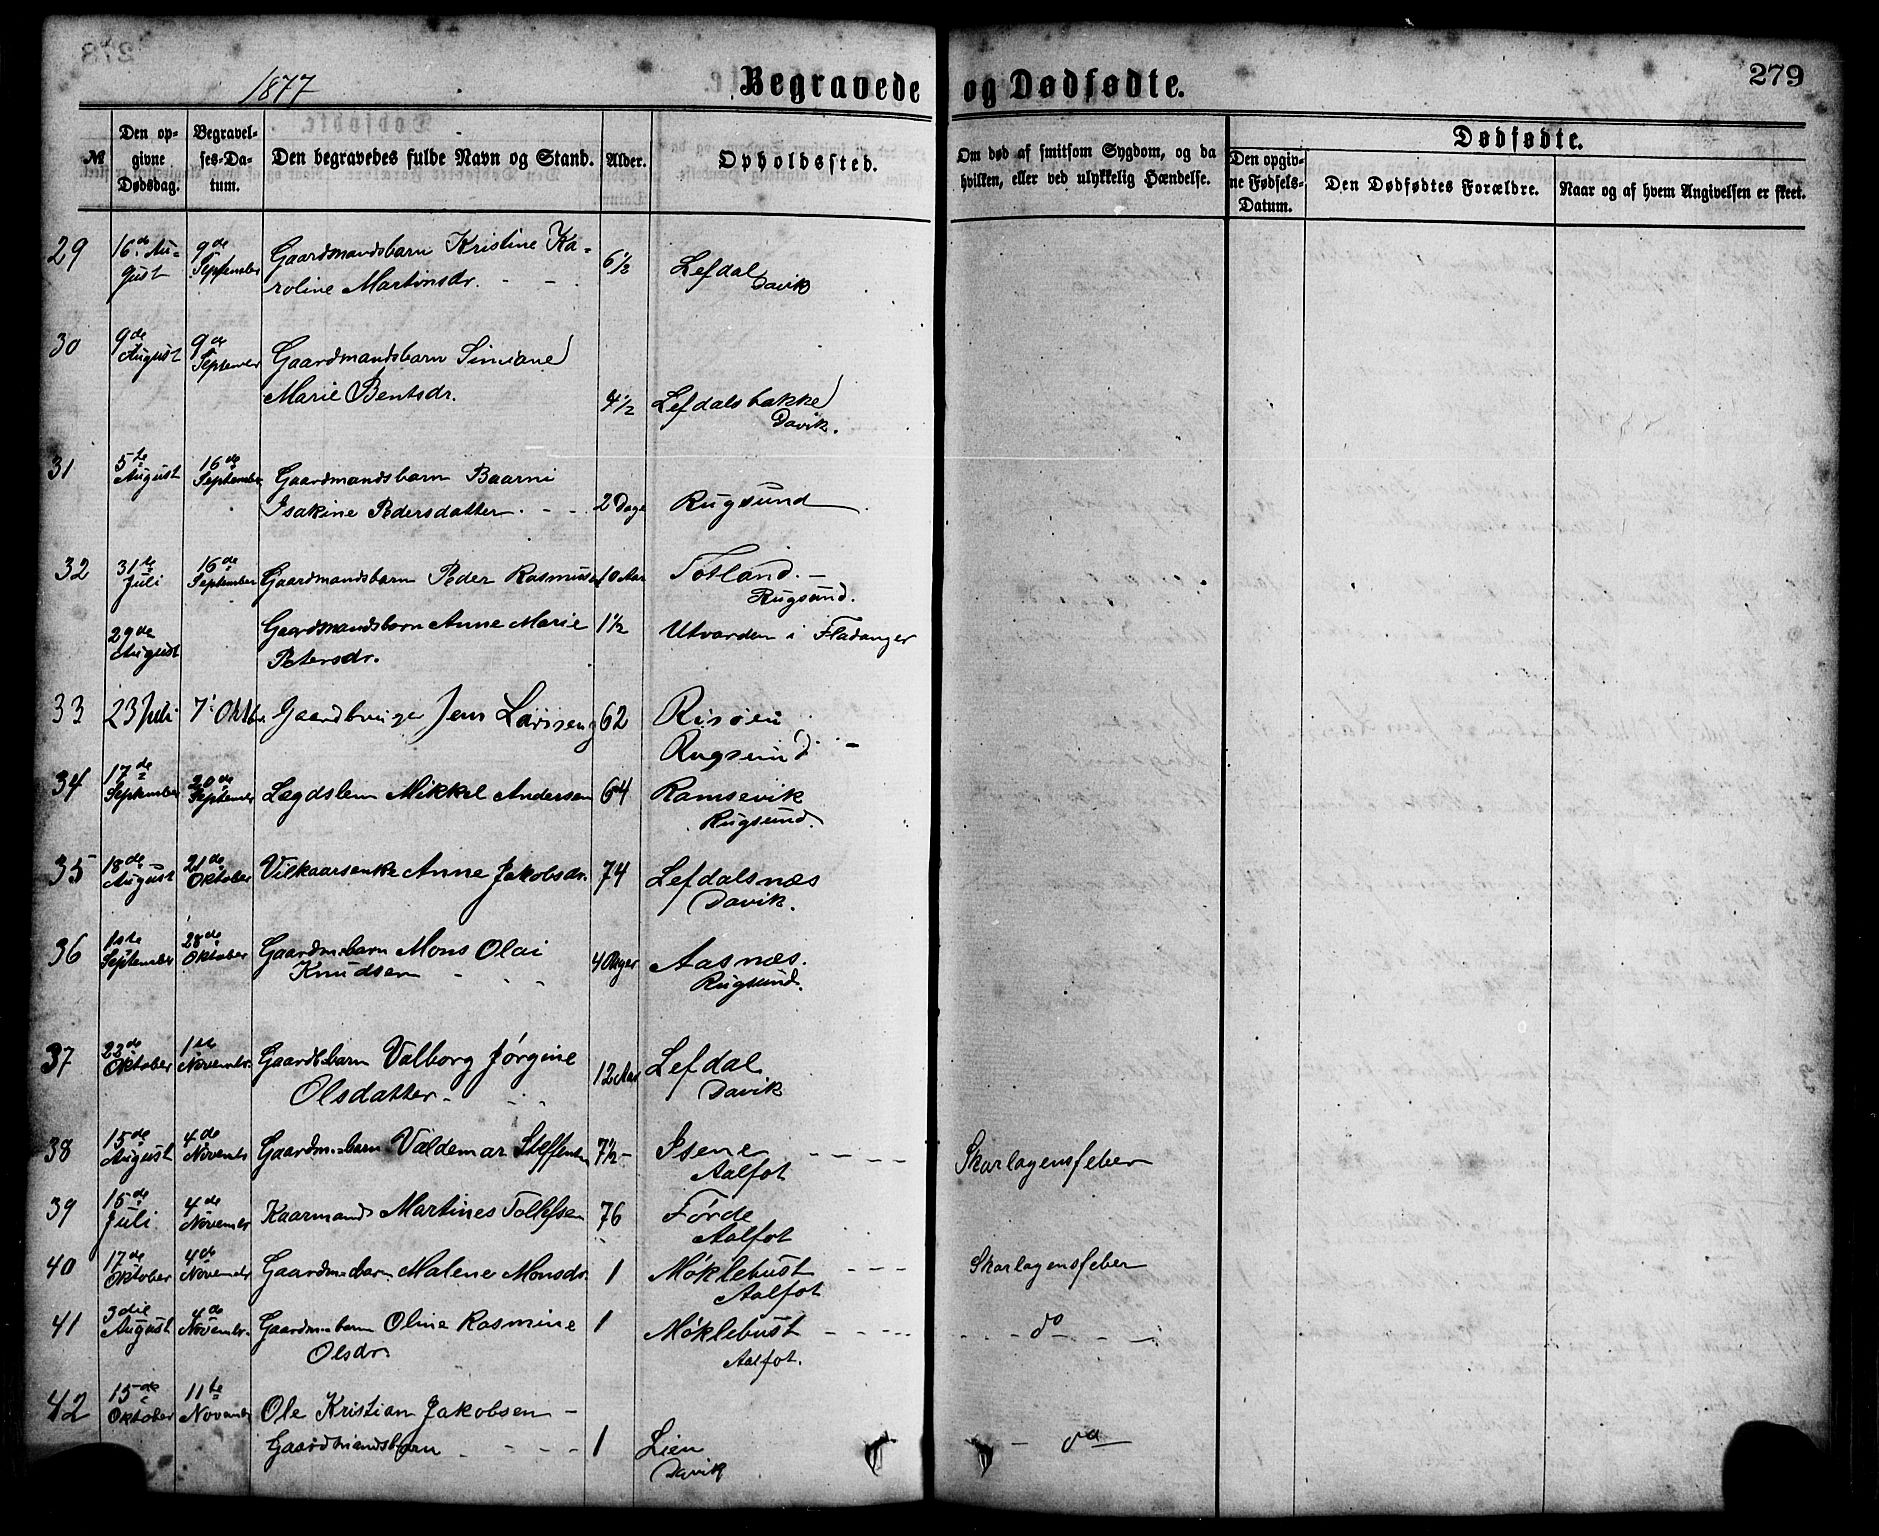 1877
Begravede og Dødfødte.
279
№
Den opgivne Dødsdag.
Begravelses-Datum.
Den begravedes fulde Navn og Stand.
Alder.
Opholdssted.
Om død af smitsom Sygdom, og da hvilken, eller ved ulykkelig Hændelse.
Dødfødte.
Den opgivne Fødsels-Datum.
Den Dødfødtes Forældre.
Naar og af hvem Angivelsen er skeet.
29 16de August 9de September Gaardmandsbarn Kristine Ka-
roline Martinsdr. - - 6½ Lefdal
Davik
30 9de August 9de September Gaardmandsbarn Simiane
Marie Bentsdr. 4½ Lefdalsbakke
Davik.
31 5te August 16de September Gaardmandsbarn Baarni
Isakine Pedersdatter. - - 2 Dage Rugsund
32 31te Juli 16de September Gaardmandsbarn Peder Rasmussen 10 Aar Totland. -
Rugsund.
29de August Gaardmandsbarn Anne Marie 1½ Utvarden i Fladanger
Petersdr.
33 23 Juli 7' Oktbr. Gaardbruger Jens Larssen 62 Risøen
Rugsund. -
34 17de September 20de September Lægdslem Mikkel Andersen 64 Ramsevik
Rugsund.
35 18de August 21de Oktober Vilkaarsenke Anne Jakobsdr. 74 Lefdalsnæs
Davik.
36 1ste September 28de Oktober Gaardm.barn Mons Olai
Knudsen - - 4 Uger Aasnæs.
Rugsund.
37 22de Oktober 1ste Novembr. Gaardsbarn Valborg Jørgine
Olsdatter - - - 12 Aar Lefdal
Davik
38 15de August 4de Novembr Gaardm.barn Valdemar Steffensen 7½ - Isene - - - -
Aalfot
Skarlagensfeber
39 15de Juli 4de Novembr Kaarmand Martines Tollefsen 76 Førde
Aalfot
40 17de Oktober 4de Novembr Gaardm.barn Malene Monsdr. 1 Møklebust - - -
Aalfot
Skarlagensfeber
41 3die August 4de Novembr. Gaardm.barn Oline Rasmine 1 Møklebust - - - -
Olsdr. Aalfot.
- - - do - - -
42 15de Oktober 11te Novembr Ole Kristian Jakobsen -
Gaardmandsbarn - - - - 1 Lien
Davik
- - do